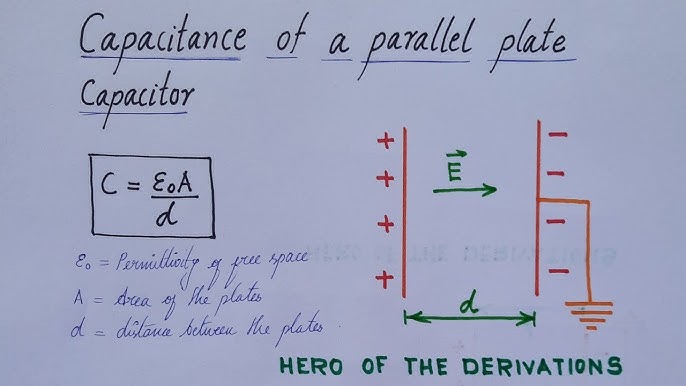 Capacitance of a parallel plate
Capacitor
C = ε₀A/d
ε₀ = Permittivity of free space
A = Area of the plates
d = distance between the plates.
+ −
+ −
+ −
+ −
E⃗
d
HERO OF THE DERIVATIONS